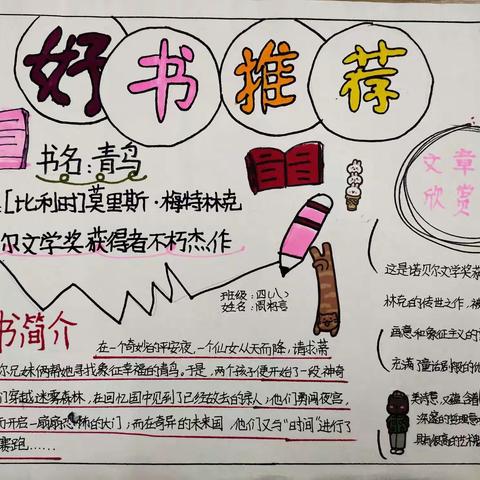 好书推荐
书名:青鸟
[比利时]莫里斯·梅特林克
尔文学奖获得者不朽杰作
文章
欣赏
班级:四(八)
姓名:周
书简介
在一个奇妙的平安夜,一个仙女从天而降,请求蒂
尔兄妹俩帮她寻找象征幸福的青鸟。于是,两个孩子便开始了一段神奇
们穿越迷雾森林,在回忆国中见到了已经故去的亲人,他们勇闯夜宫,
而开启一扇扇恐怖的大门,而在奇异的未来国,他们又与"时间"进行了
赛跑……
这是诺贝尔文学奖获
林克的传世之作,被
寓意和象征主义的
充满了童话剧般的
美诗意,又蕴含着
深邃的哲理意
具有很高的艺术